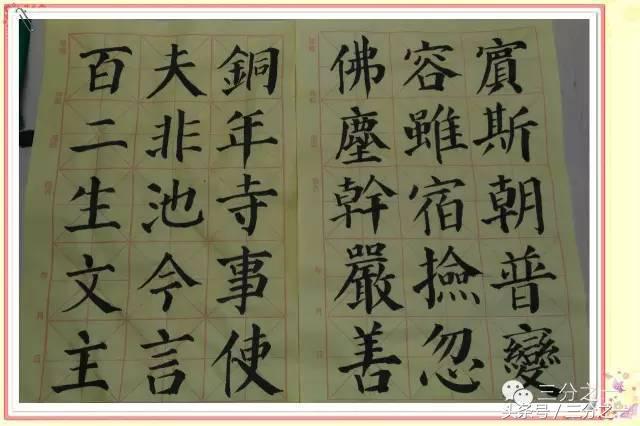 賓斯朝普變
容雖宿撿忽
佛塵幹嚴善
銅年寺事使
夫非池今言
百二生文主
三分之一
头条号 / 三分之一